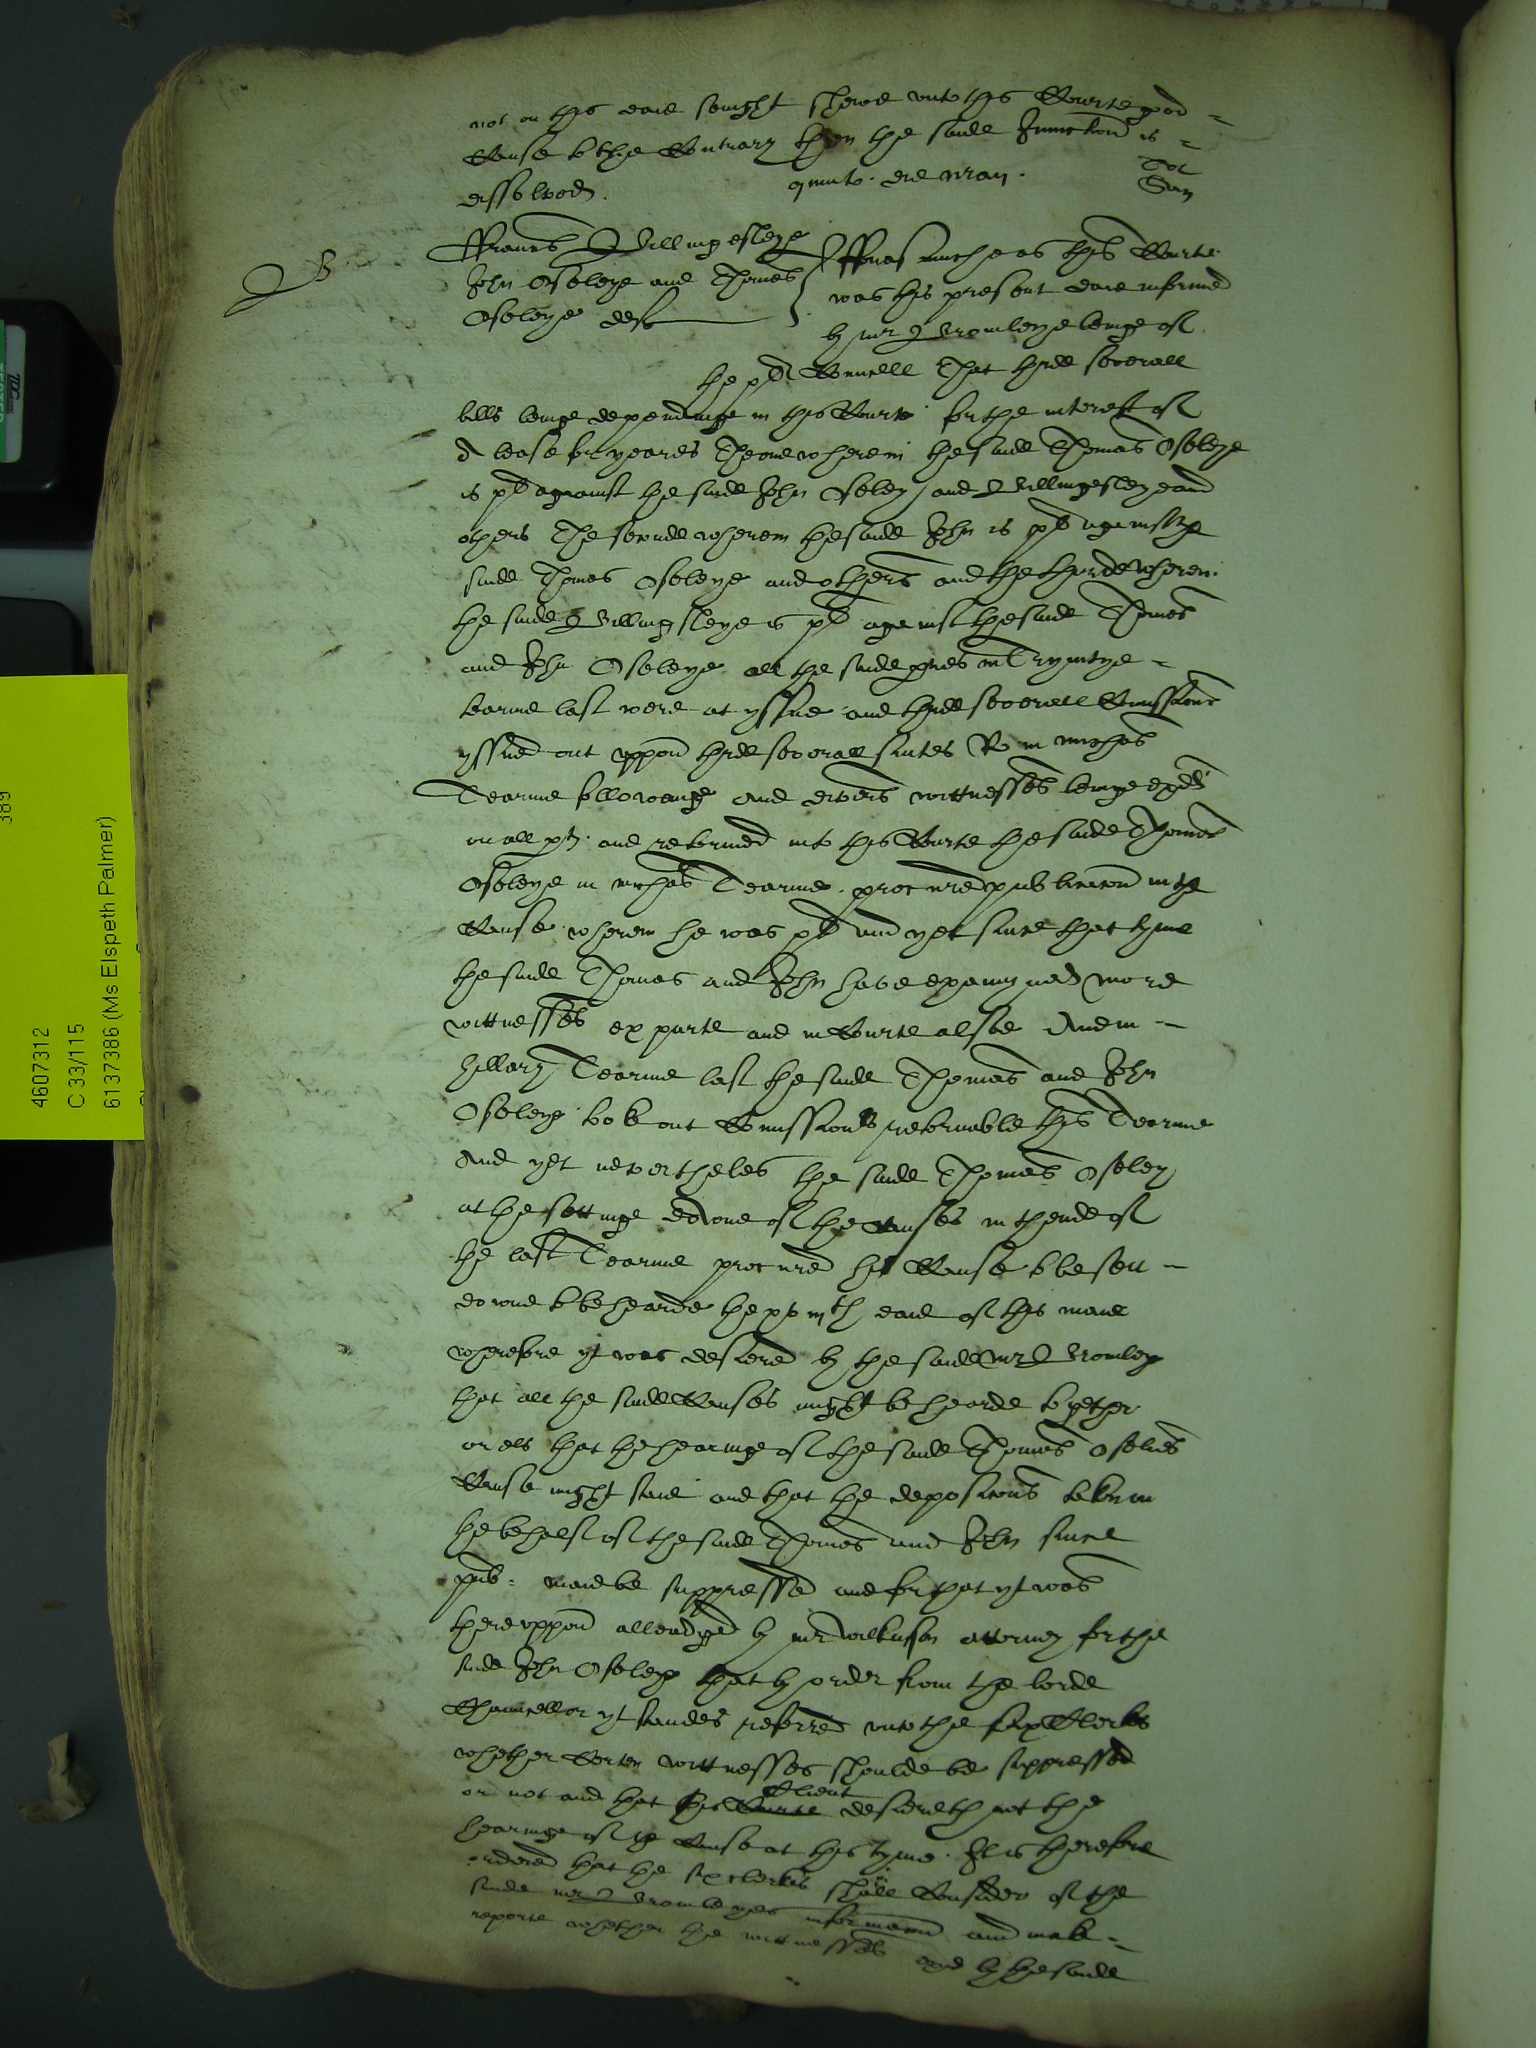 not on this daie senight shewe unto this Courte good
Cause to the Contrary then the saide Iniunction is
dissolved. quinto die May.
B
Frauncis Billingesleye
John Oseleye and Thomas
Oseleye deftes
Forasmuche as this Courte
was this present daie informed
by mr Bromleye beinge of
the pl Councell That three severall
bills beinge dependinge in this Courte for the interest of
A lease for yeares Theone wherein the saide Thomas Oseleye
is pl againste the saide John Oseley and Billingesleye and
others The seconde wherein the saide John is pl against the
saide Thomas Oseleye and others and the thirde wherein
the saide Billingsleye is pl against the saide Thomas
and John Oseleye all the saide Causes in Trynitye
tearme last were at yssue and three severall Comissions
yssued out uppon three severall suites Ro in michas
Tearme followinge And divers wittnesses beinge exed
on all ptes and retorned into this Courte the saide Thomas
Oseleye in michas Tearme procured publicacion in the
Cause wherein he was pl and yet since that tyme
the saide Thomas and John have examyned more
wittnesses ex parte and in Courte alsoe And in
hillary Tearme last the saide Thomas and John
Oseleye tooke out Comissions retornable this Tearme
And yet nevertheles the saide Thomas Oseley
at the settinge downe of the Causes in thende of
the last Tearme procured his Cause to be sett
downe to be hearde the xxvith daie of this maie
wherefore yt was desiered by the saide mr Bromley
that all the saide Causes might be hearde together
or els that the hearinge of the saide Thomas Oselies
Cause might staie and that the deposicions taken in
the behalf of the saide Thomas and John since
pub: maie be suppressed and for that yt was
thereuppon alleadged by mr Wilkinson attorney for the
saide John Oseleye that by order from the lorde
Chauncellor yt standes referred unto the six Clerkes
whether Certen wittnesses shoulde be suppressed
or not and that his Client desiereth not the
hearinge of the Cause at this tyme. It is therefore
ordered that the six clerkes shall Consider of the
saide mr Bromleyes informacion and make
reporte whether the wittnesses exed by the saide
4607312
C 33/115
6137386 (Ms Elspeth Palmer)
389